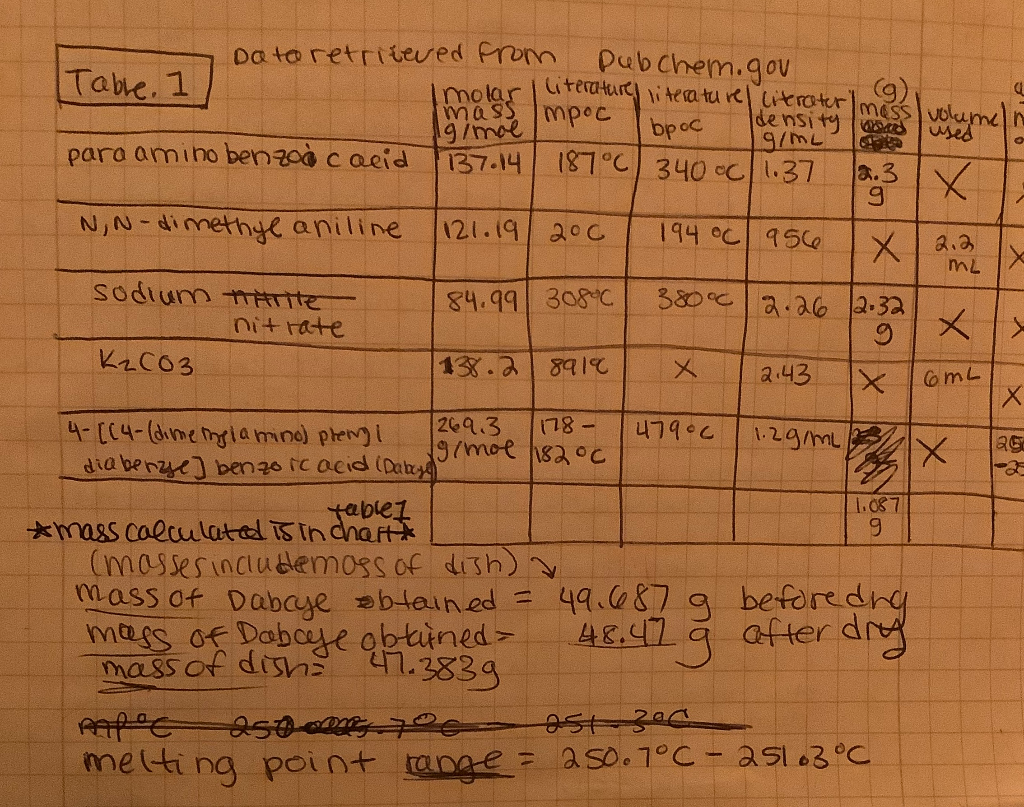 Data retrieved from Pubchem.gov
Table. 1
molar mass g/mol | literature mpoc | literature bpoc | literature density g/mL | (g) mass | volume used
para amino benzoic acid | 137.14 | 187°C | 340°C | 1.37 | 2.3 g | X
N,N-dimethyl aniline | 121.19 | 2°C | 194°C | 956 | X | 2.2 mL | X
sodium nitrite nitrate | 84.99 | 308°C | 380°C | 2.26 | 2.32 g | X
K2CO3 | 138.2 | 891°C | X | 2.43 | X | 6mL | X
4-[(4-(dimethylamino) phenyl diabenzye] benzoic acid (Dabcye) | 269.3 g/mol | 178-182°C | 479°C | 1.2g/mL | X
1.087 g
*mass calculated is in chart* table 1
(masses include mass of dish)
mass of Dabcye obtained = 49.687 g before dry
mass of Dabcye obtained = 48.47 g after dry
mass of dish= 47.383g
melting point range = 250.7°C - 251.3°C